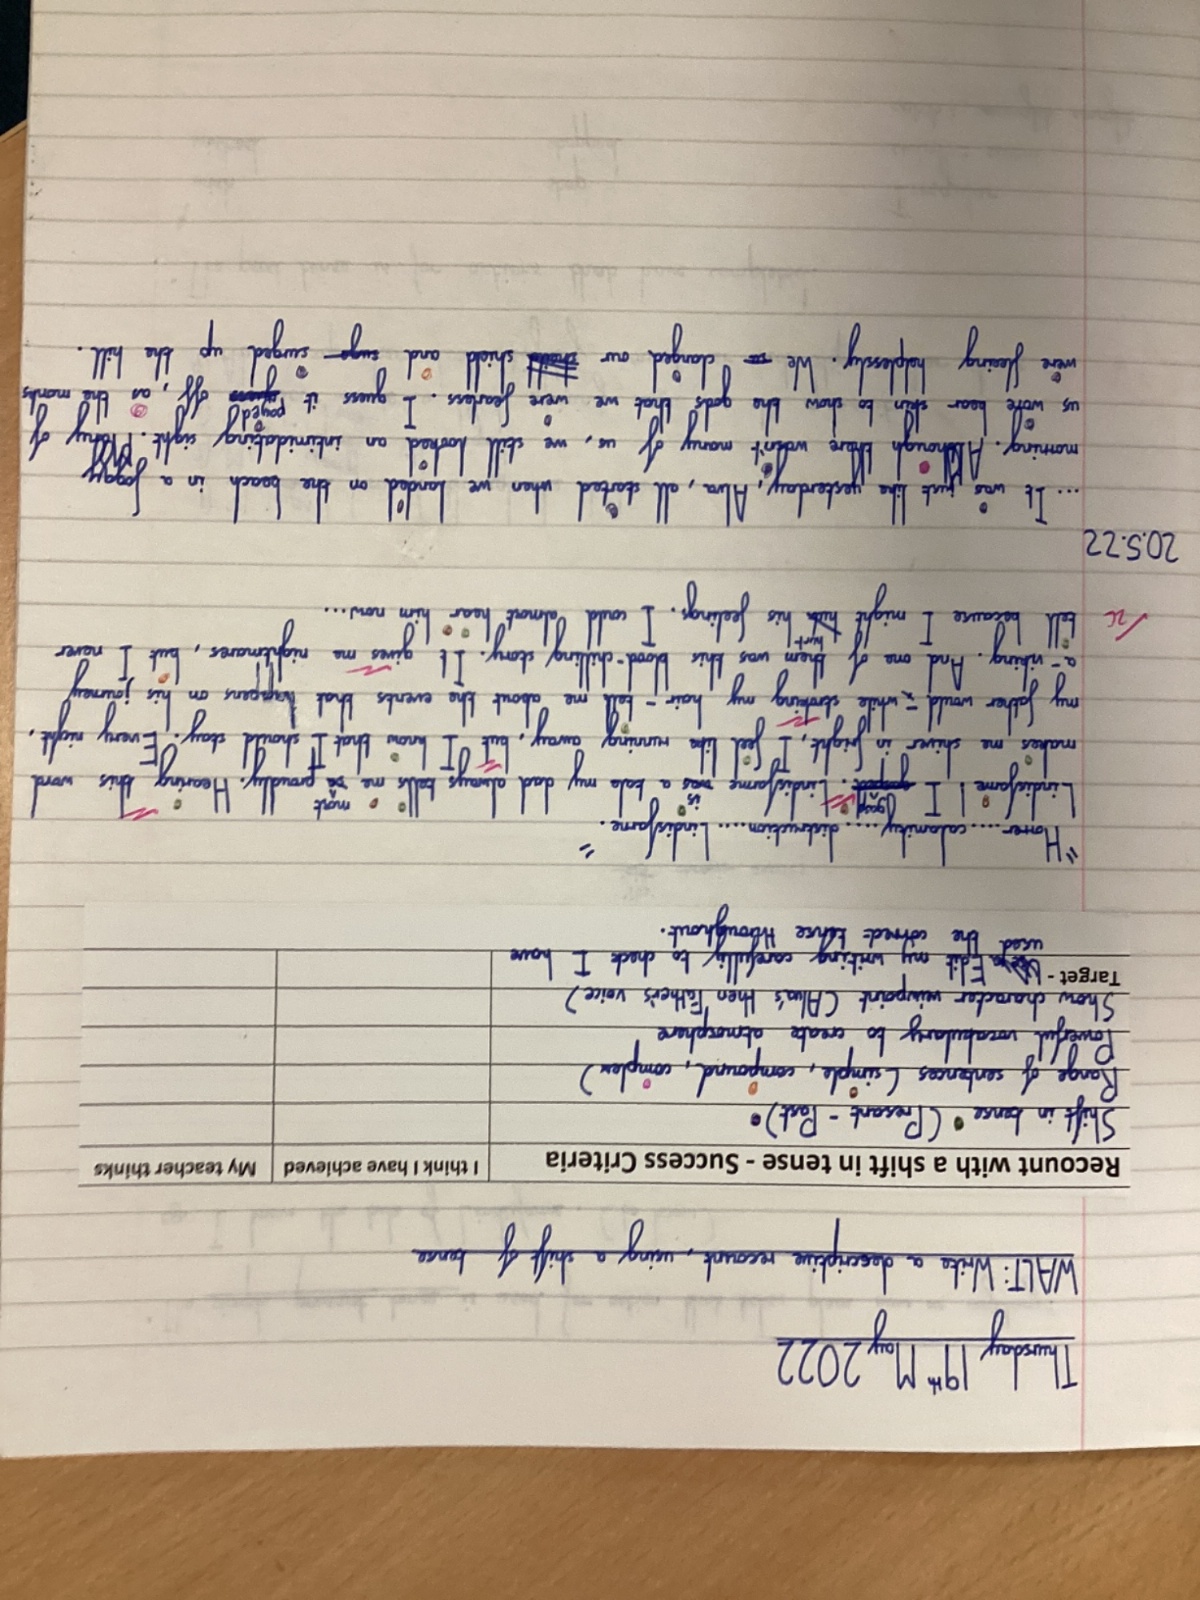 Thursday 19th May 2022
WALT: Write a descriptive recount, using a shift of tense
Recount with a shift in tense - Success Criteria I think I have achieved My teacher thinks
Shift in tense (Presant - Past)
Range of sentences (simple, compound, complex)
Powerful vocabulary to create atmosphere
Show character viewpoint (Alva's then Father's voice)
Target - Edit my writing carefully to check I have
used the correct tense throughout.
"Horror..... calamity..... distruction..... Lindisfarne."
Lindisfarne! I gasp. Lindisfarne is was a tale my dad always tells me most proudly. Hearing this word
makes me shiver in fright, I feel like running away, but I know that I should stay. Every night,
my father would - while stroking my hair - tell me about the events that happens on his journey
a-viking. And one of them was this blood-chilling story. It gives me nightmares, but I never
tell because I might hurt his feelings. I could almost hear him now...
20.5.22
... It was just like yesterday, Alva, all started when we landed on the beach in a foggy
morning. Although there wasn't many of us, we still looked an intimidating sight. Many of
us wore bear skin to show the gods that we were fearless. I guess it payed off, as the monks
were fleeing helplessly. We clanged our shield and surged up the hill.